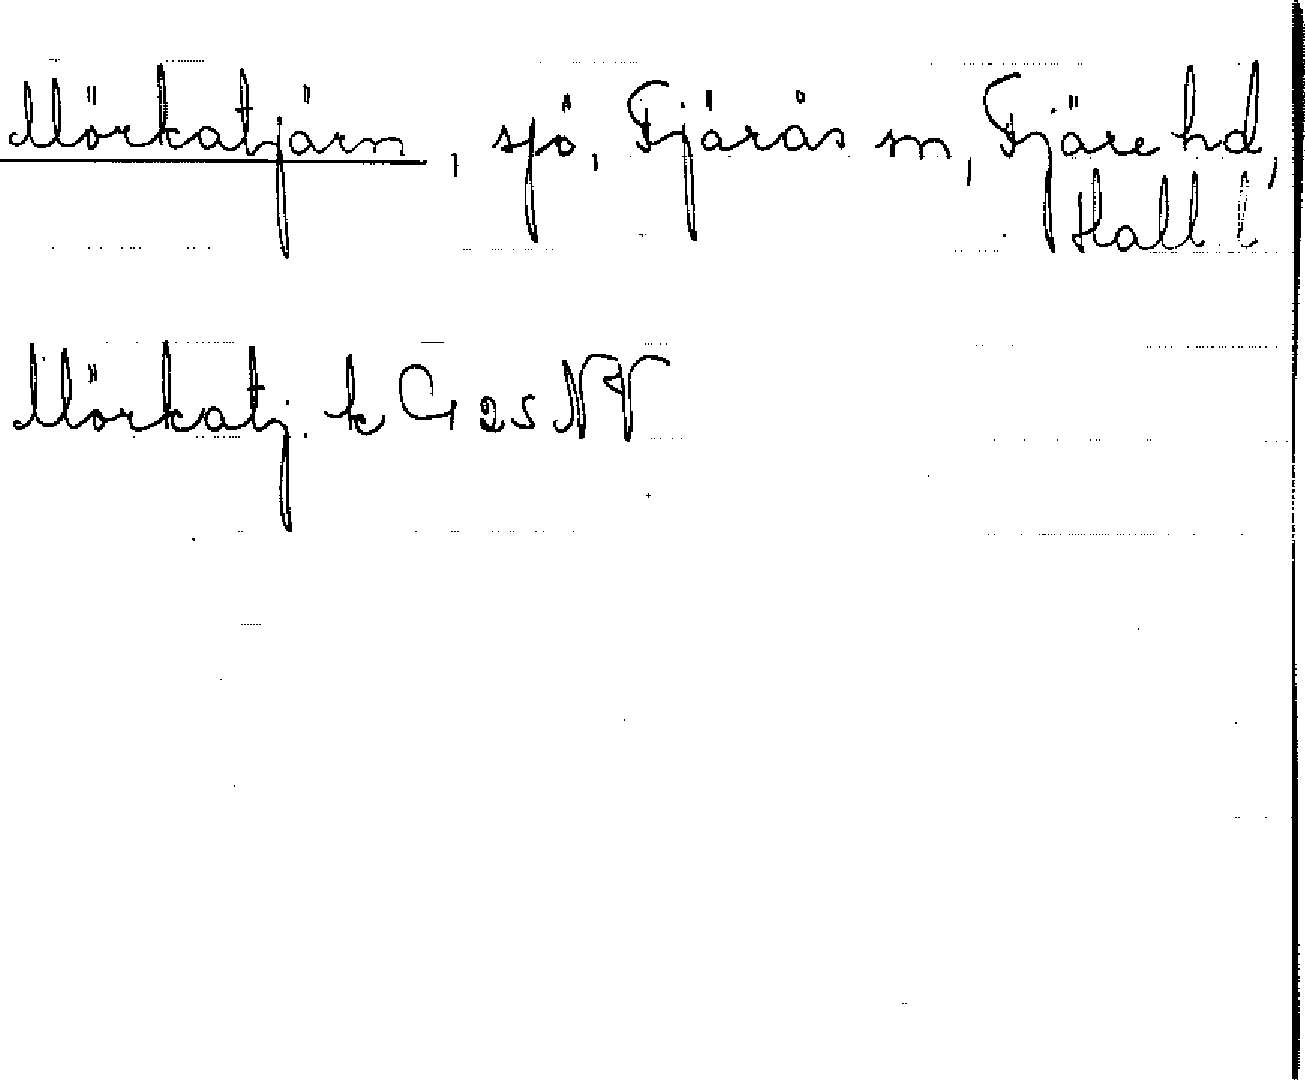 Mörkatjärn, sjö, Fjärås sn, Fjäre hd,
Hall l
Mörkatj. k G 25 NV